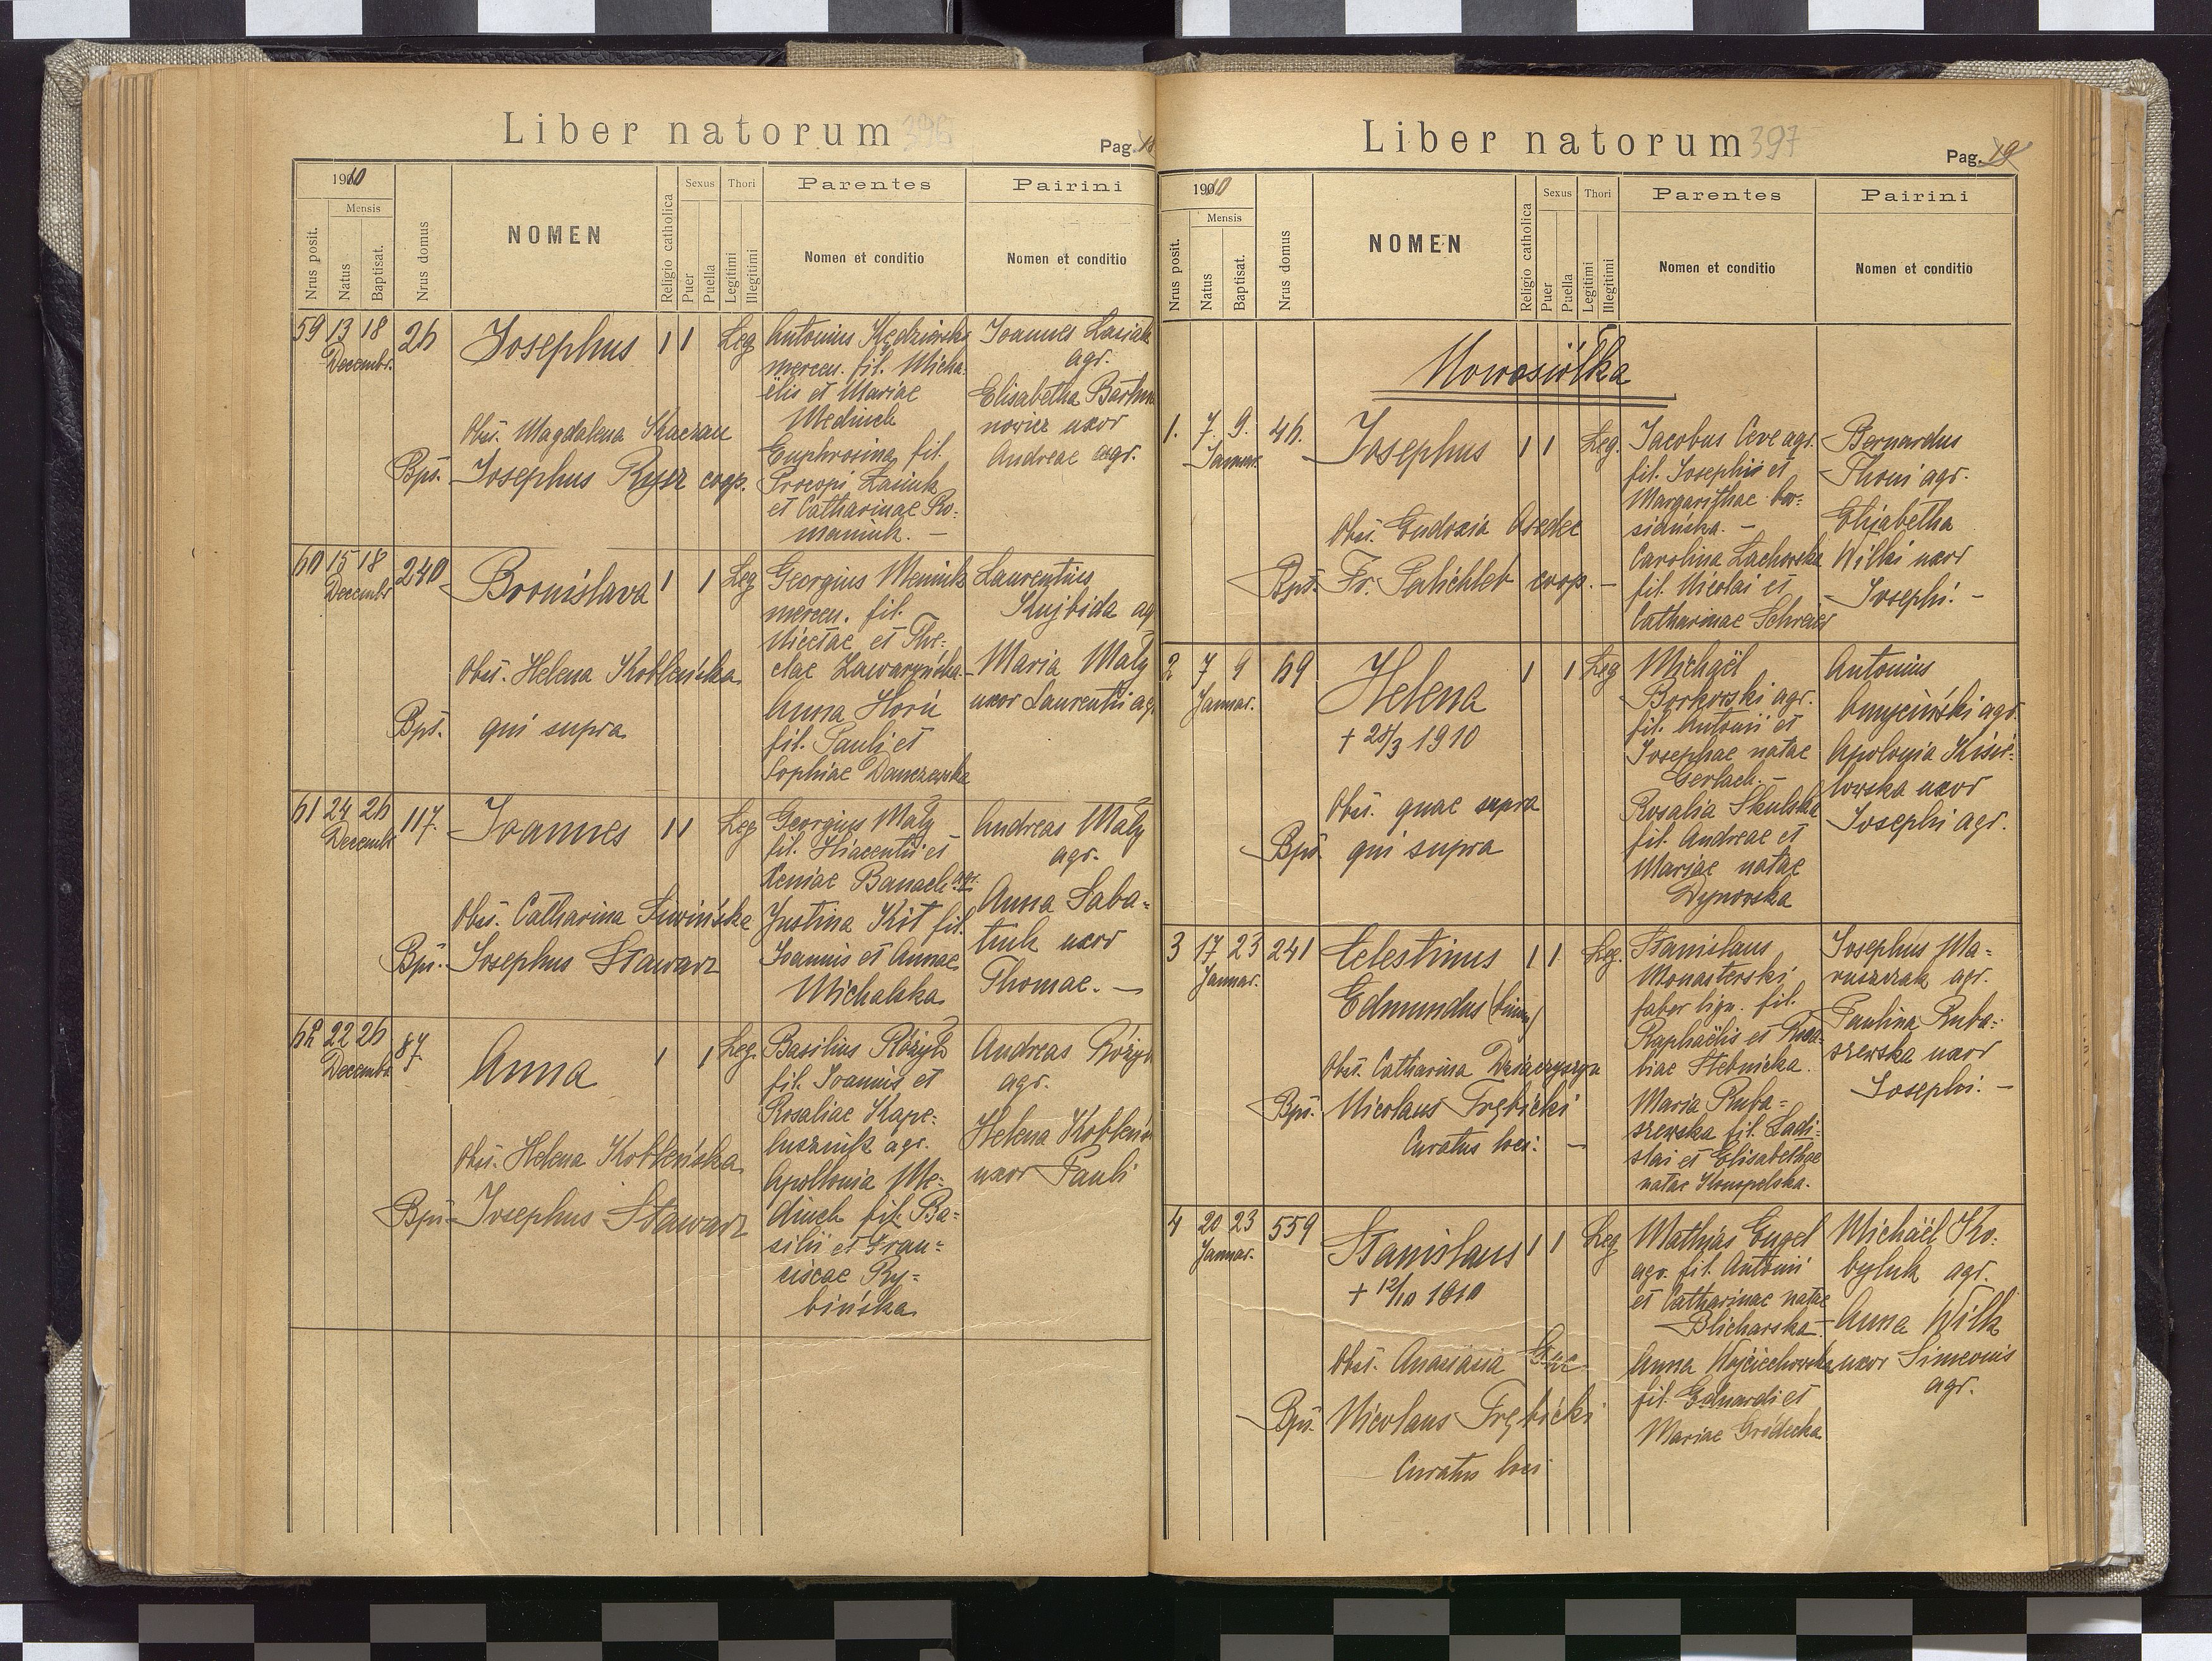 Liber natorum 396
Pag. 18
1910
Mensis
Nrus posit.
Natus
Baptisat.
Nrus domus
NOMEN
Religio catholica
Sexus
Puer
Puella
Thori
Legitimi
Illegitimi
Parentes
Nomen et conditio
Pairini
Nomen et conditio
59 13 18 26 Josephus 1 1 Leg
Decembr.
Antonius
mercen. fil. Micha-
ëlis et Mariae
Mediuch
Euphrosina fil.
Procopi Lasiuk
et Catharinae Ro-
maniuk. –
Joannes Lasiuk
agr.
Elisabetha
nowicz uxor
Andreae agr.
Obst. Magdalena
Bpt. Josephus Ryżz coop.
60 15 18 240 Bronislava 1 1 Leg
Decembr
Georgius
mercen. fil.
Nicetae et The-
clae
Anna Horń
fil. Pauli et
Sophiae Danczewska
Laurentius
Kujbida agr
Maria Mały
uxor Laurentii agr.
Obst. Helena Kobleńska
Bpt. qui supra
61 24 26 117. Joannes 1 1 Leg
Decembr
Georgius Mały
fil. Hiacenti et
Xeniae Banach agr.
Justina Kit fil.
Joannis et Annae
Michalska
Andreas Mały
agr.
Anna Saba-
tiuk uxor
Thomae. –
Obst. Catharina Siwińska
Bpt. Josephus Stawarz
62 22 26 87. Anna 1 1 Leg.
Decembr
Basilius Różyk
fil. Joannis et
Rosaliae Kape-
luszniak agr.
Apollonia Me-
diuch fil. Ba-
silii et Fran-
ciscae Ry-
bińska
Andreas Różyk
agr.
Helena
uxor Pauli
Obst. Helena Kobleńska
Bpt. Josephus Stawarz
Liber natorum 397
Pag. 19
1910
Mensis
Nrus posit.
Natus
Baptisat.
Nrus domus
NOMEN
Religio catholica
Sexus
Puer
Puella
Thori
Legitimi
Illegitimi
Parentes
Nomen et conditio
Pairini
Nomen et conditio
Nowosiółka
1. 7. 9. 46. Josephus 1 1 Leg.
Januar.
Jacobus Ceve agr.
fil. Josephi et
Margarithae
Carolina Lachowska
fil. Nicolai et
Catharinae Schreier
Bernardus
Thoni agr.
Elisabetha
Wilki uxor
Josephi. –
Obst. Eudoxia
Bpt. Fr. Palichleb coop. –
2 7 9 69 Helena 1 1 Leg
Januar.
+ 25/3 1910
Michaël
Borkowski agr.
fil. Antonii et
Josephae natae
Gerlach. –
Rosalia Skulska
fil. Andreae et
Mariae natae
Dynowska
Antonius
agr.
Apolonia Kisie-
lowska uxor
Josephi agr.
Obst. quae supra
Bpt. qui supra
3 17 23 241 Celestinus 1 1 Leg.
Januar.
Edmundus
Stanislaus
Monasterski
faber lign. fil.
Raphaëlis et Rosa-
liae Stebnicka.
Maria Ruba-
szewska fil. Ladi-
slai et Elisabethae
natae Konopelska.
Josephus Ma-
ruszczak agr.
Paulina Ruba-
szewska uxor
Josephi. –
Obst. Catharina
Bpt. Nicolaus Trębicki
Curatus loci. –
4 20 23 559 Stanislaus 1 1 Leg
Januar.
+ 12/10 1910
Mathias Engel
agr. fil. Antoni
et Catharinae natae
Blicharska –
Anna Wojciechowska
fil. Eduardi et
Mariae Gródecka
Michaël Ko-
byluk agr.
Anna Wilk
uxor Simeonis
agr.
Obst. Anastasia
Bpt. Nicolaus Trębicki
Curatus loci